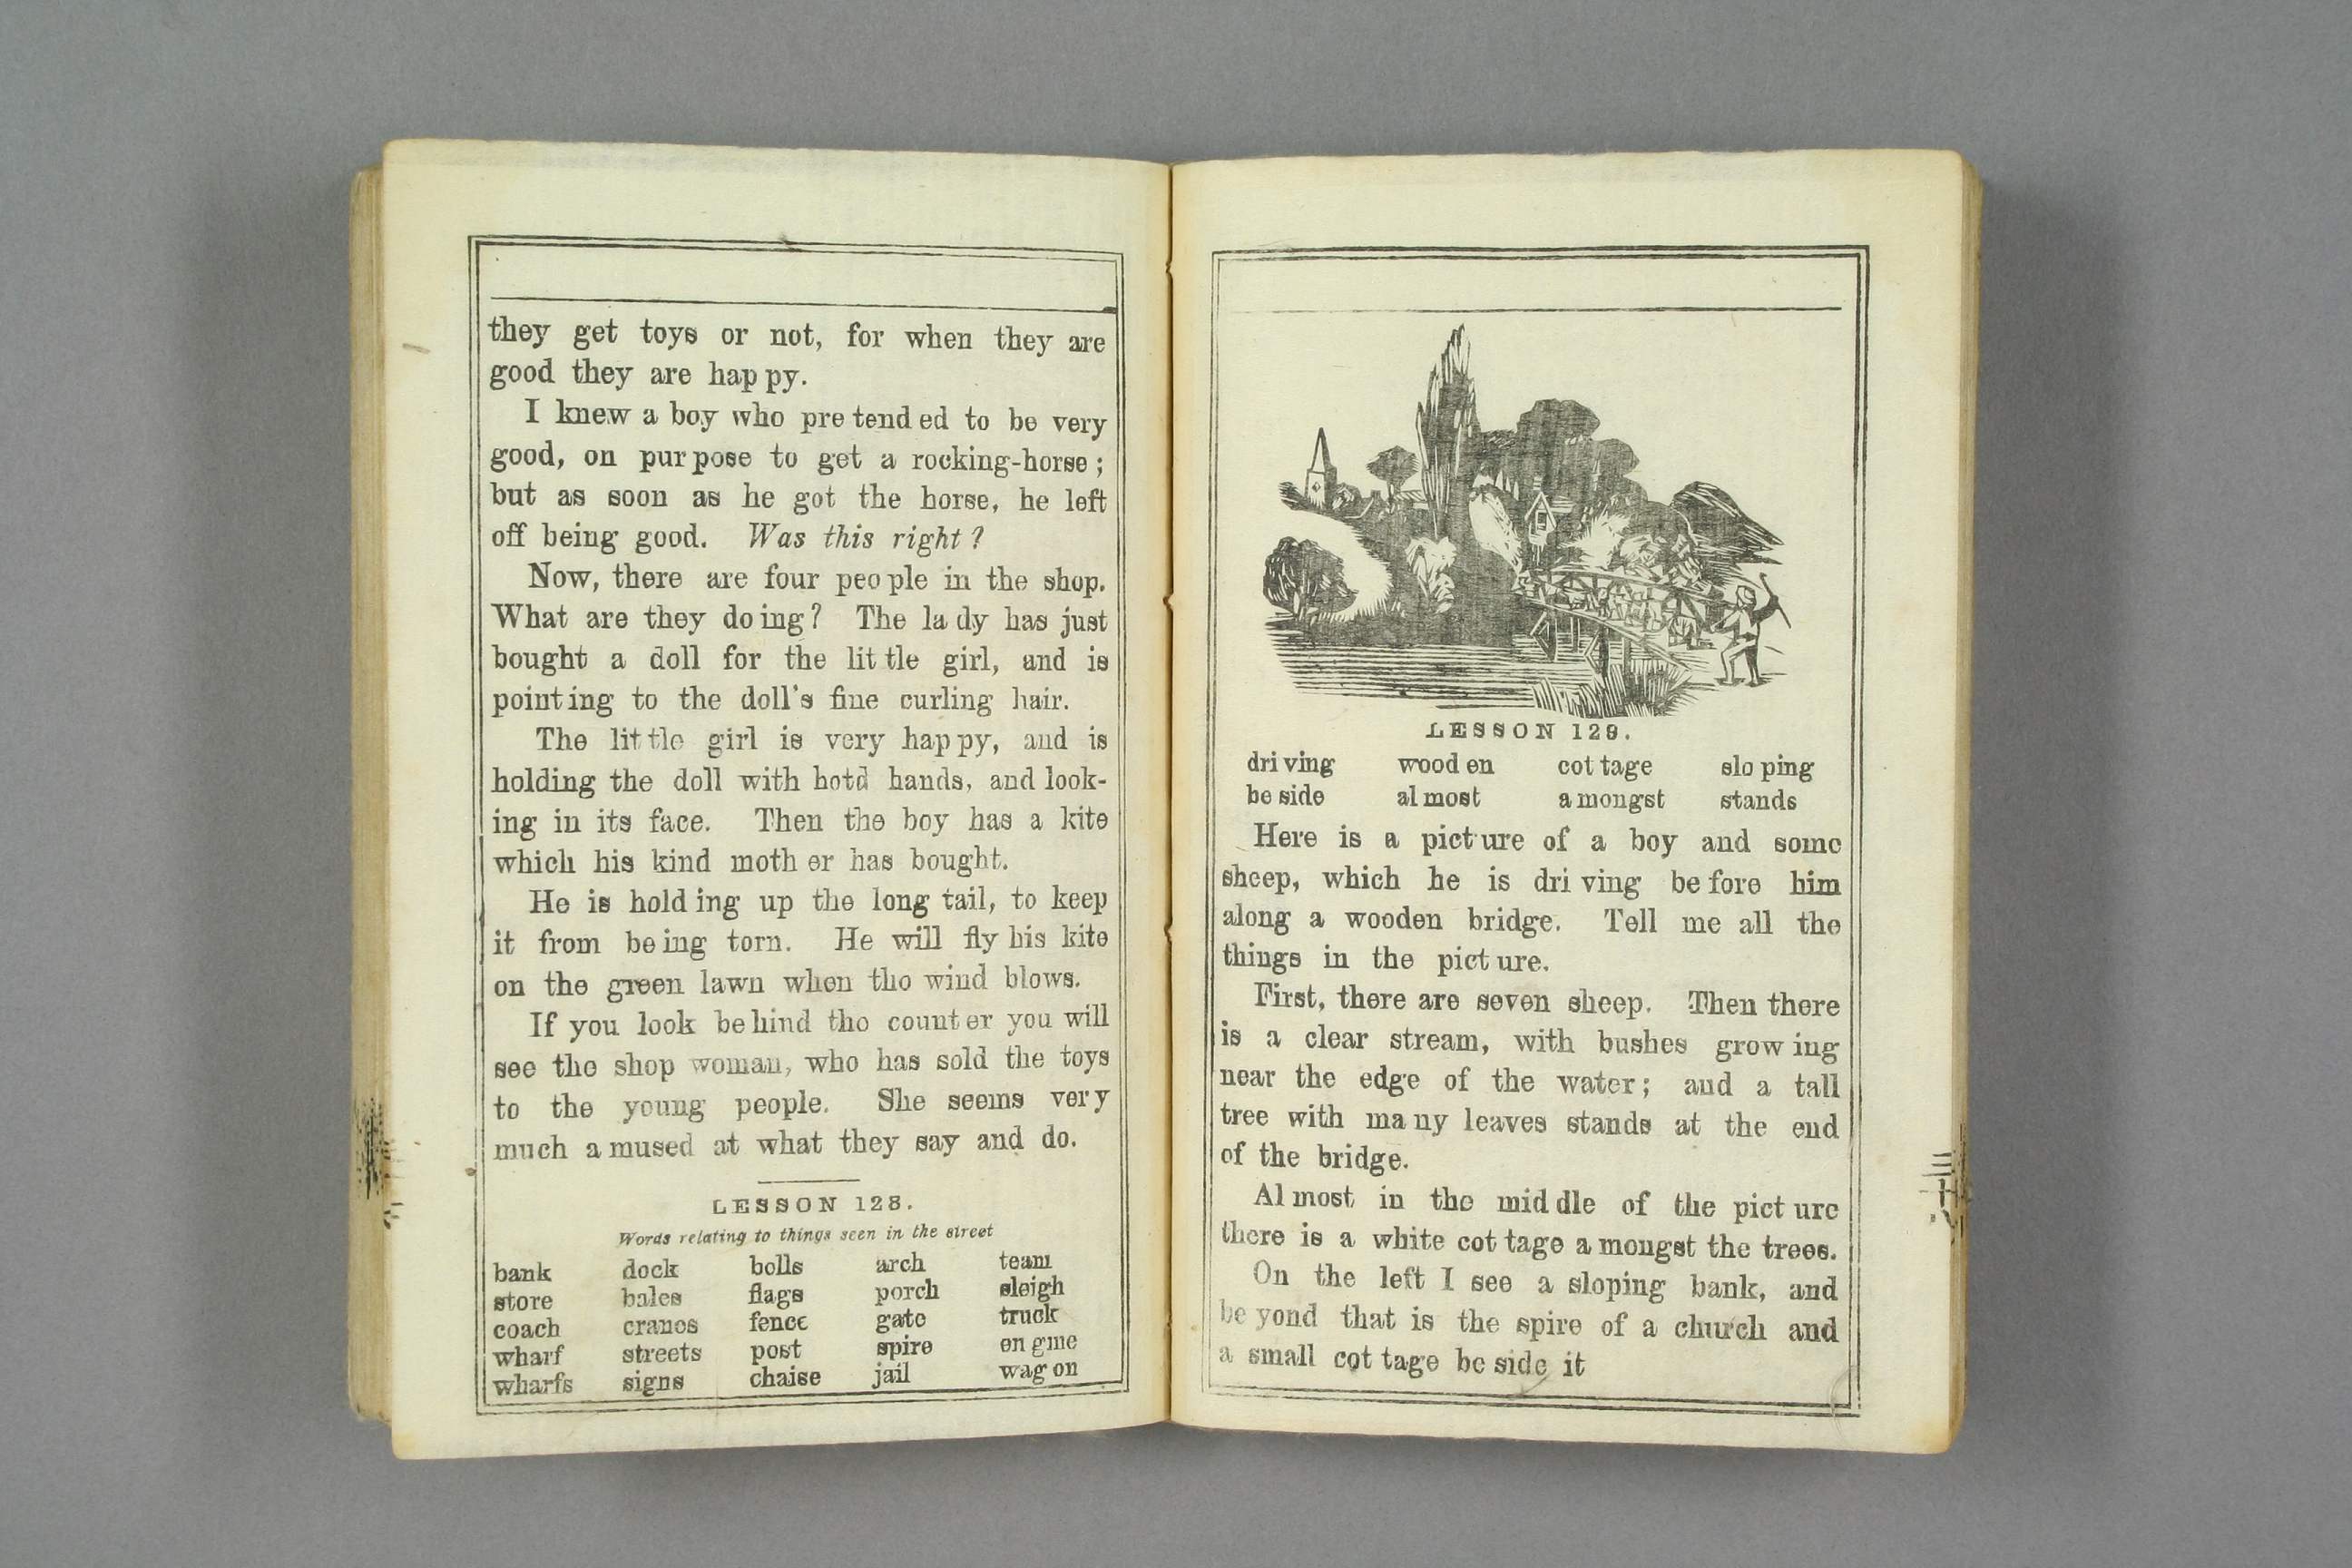 they get toys or not, for when they are
good they are hap py.
I knew a boy who pre tend ed to be very
good, on pur pose to get a rocking-horse;
but as soon as he got the horse, he left
off being good. Was this right?
Now, there are four peo ple in the shop.
What are they do ing? The la dy has just
bought a doll for the lit tle girl, and is
point ing to the doll's fine curling hair.
The lit tle girl is very hap py, and is
holding the doll with hotd hands, and look-
ing in its face. Then the boy has a kite
which his kind moth er has bought.
He is hold ing up the long tail, to keep
it from be ing torn. He will fly his kite
on the green lawn when the wind blows.
If you look be hind the count er you will
see the shop woman, who has sold the toys
to the young people. She seems very
much a mused at what they say and do.
LESSON 128.
Words relating to things seen in the street
bank dock bells arch team
store bales flags porch sleigh
coach cranes fence gate truck
wharf streets post spire en gine
wharfs signs chaise jail wag on
LESSON 129.
dri ving wood en cot tage slo ping
be side al most a mongst stands
Here is a pict ure of a boy and some
sheep, which he is dri ving be fore him
along a wooden bridge. Tell me all the
things in the pict ure.
First, there are seven sheep. Then there
is a clear stream, with bushes grow ing
near the edge of the water; and a tall
tree with ma ny leaves stands at the end
of the bridge.
Al most in the mid dle of the pict ure
there is a white cot tage a mongst the trees.
On the left I see a sloping bank, and
be yond that is the spire of a church and
a small cot tage be side it